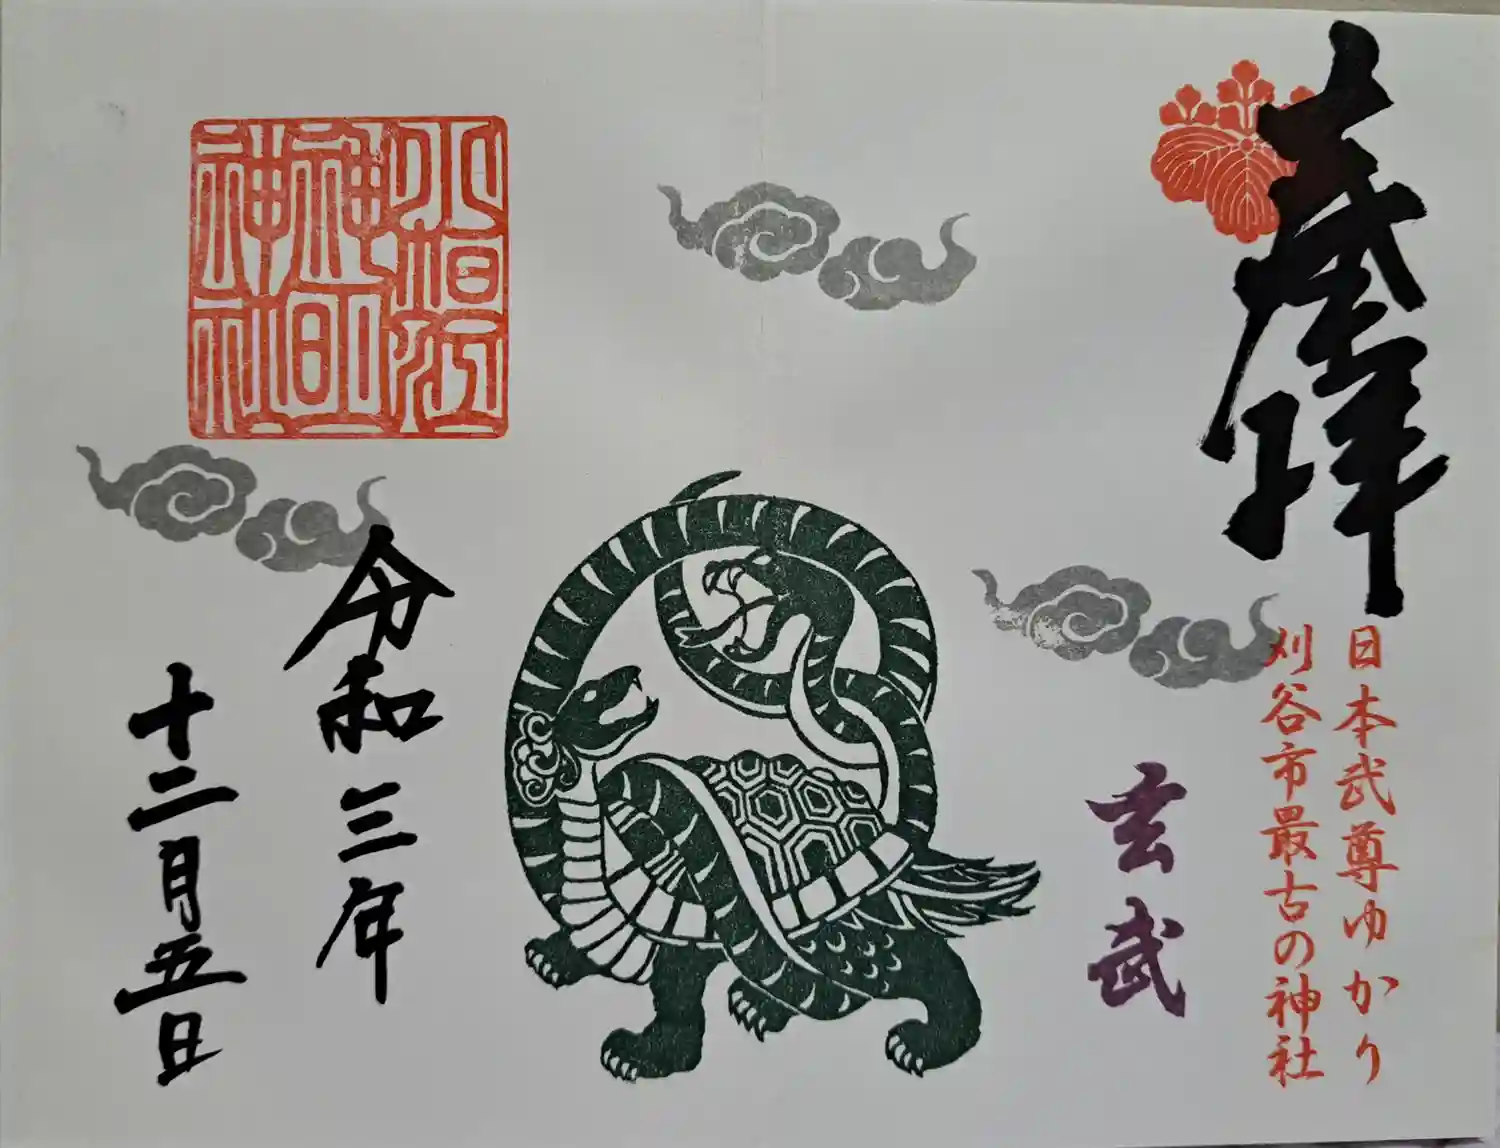 奉拝
日本武尊ゆかり
刈谷市最古の神社
玄武
小垣江
神明
神社
令和三年
十二月五日